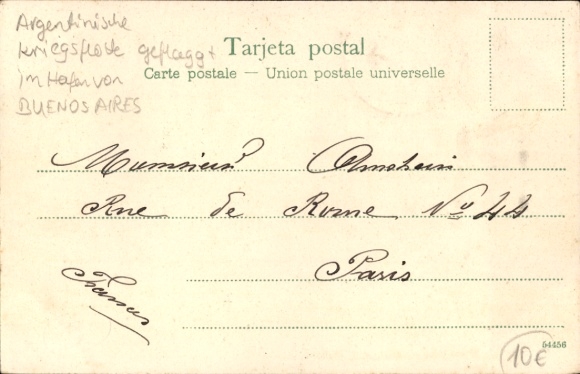 Argentinische
Kriegsflotte geflaggt
im Hafen von
BUENOS AIRES
Tarjeta postal
Carte postale — Union postale universelle
Monsieur
Rue de Rome No 44
Paris
54456
10€